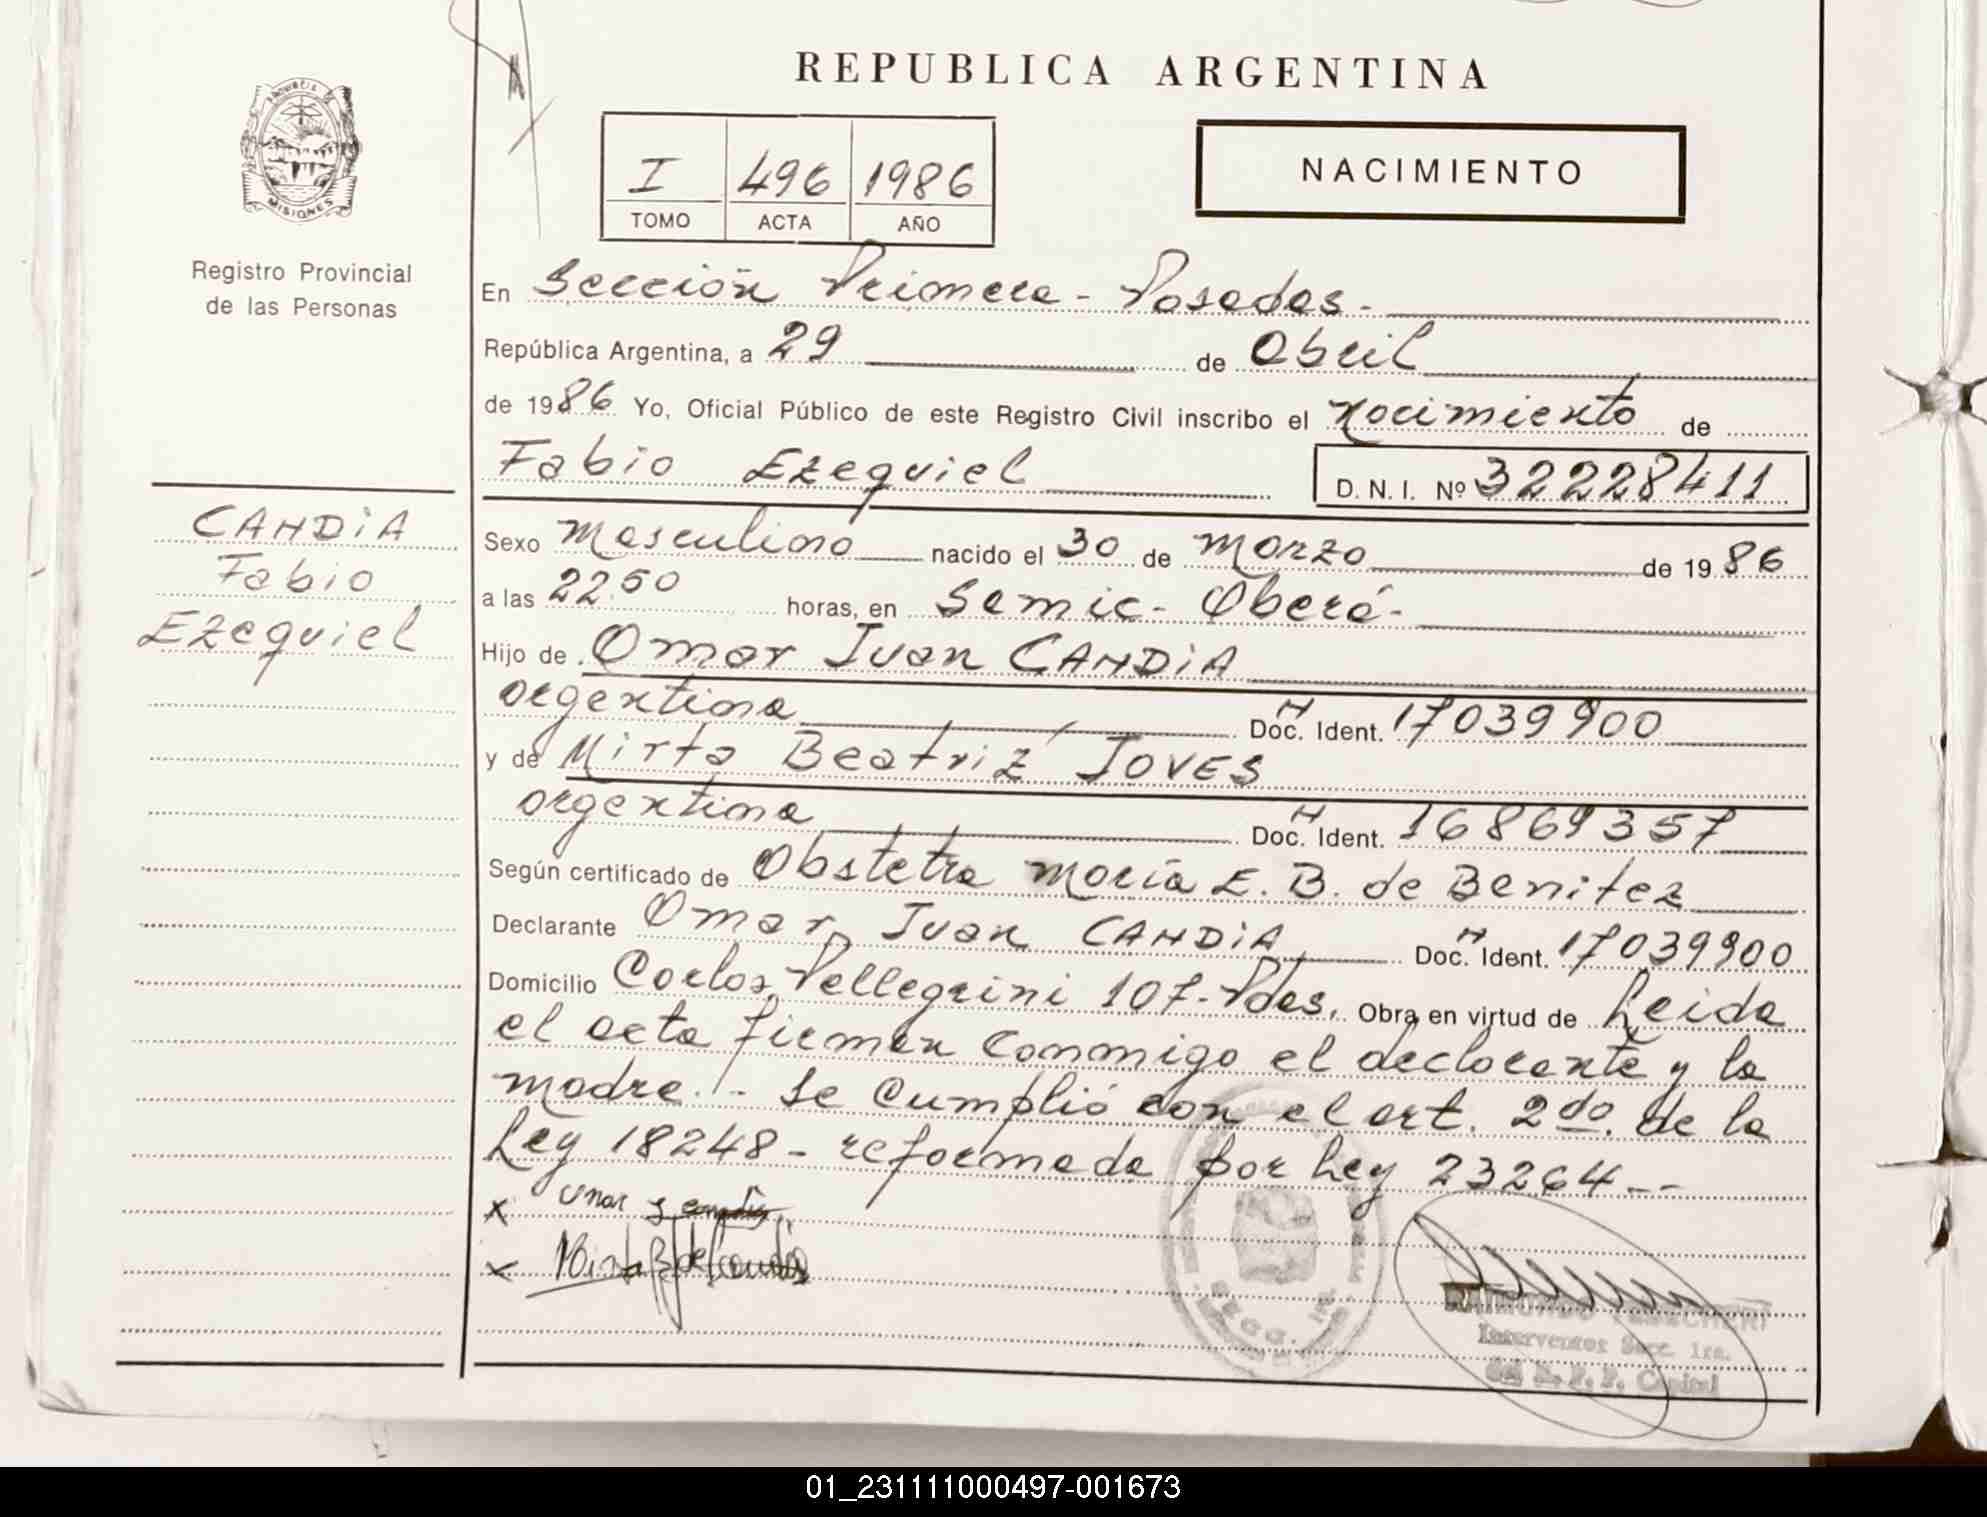 REPUBLICA ARGENTINA
PROVINCIA DE
MISIONES
Registro Provincial
de las Personas
I 496 1986
TOMO ACTA AÑO
NACIMIENTO
En Sección Primera - Posadas -
República Argentina, a 29 de Abril
de 1986 Yo, Oficial Público de este Registro Civil inscribo el nacimiento de
Fabio Ezequiel D. N. I. Nº 32228411
CANDIA
Fabio
Ezequiel
Sexo Masculino nacido el 30 de Marzo de 1986
a las 22.50 horas, en Samic - Oberá -
Hijo de Omar Juan CANDIA
argentina Doc. Ident. 17039900
y de Mirta Beatriz JOVES
argentina Doc. Ident. 16869357
Según certificado de Obstetra María E. B. de Benitez
Declarante Omar Juan CANDIA Doc. Ident. 17039900
Domicilio Carlos Pellegrini 107 - Pdas. Obra en virtud de Leida
el acta firman conmigo el declarante y la
madre. - Se cumplió con el art. 2do. de la
Ley 18248 - reformada por Ley 23264 --
x Omar J Candia
x Mirta B J de Candia
SECC. 1ra.
RAIMUNDO
Interventor Secc. 1ra.
del R. P. P. Capital
01_231111000497-001673